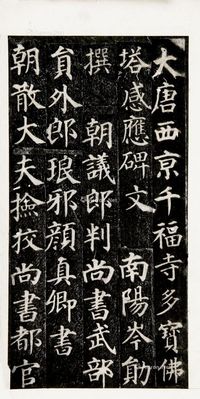 大唐西京千福寺多寶佛
塔感應碑文　南陽岑勛
撰　朝議郎判尚書武部
員外郎琅邪顏真卿書
朝散大夫撿挍尚書都官